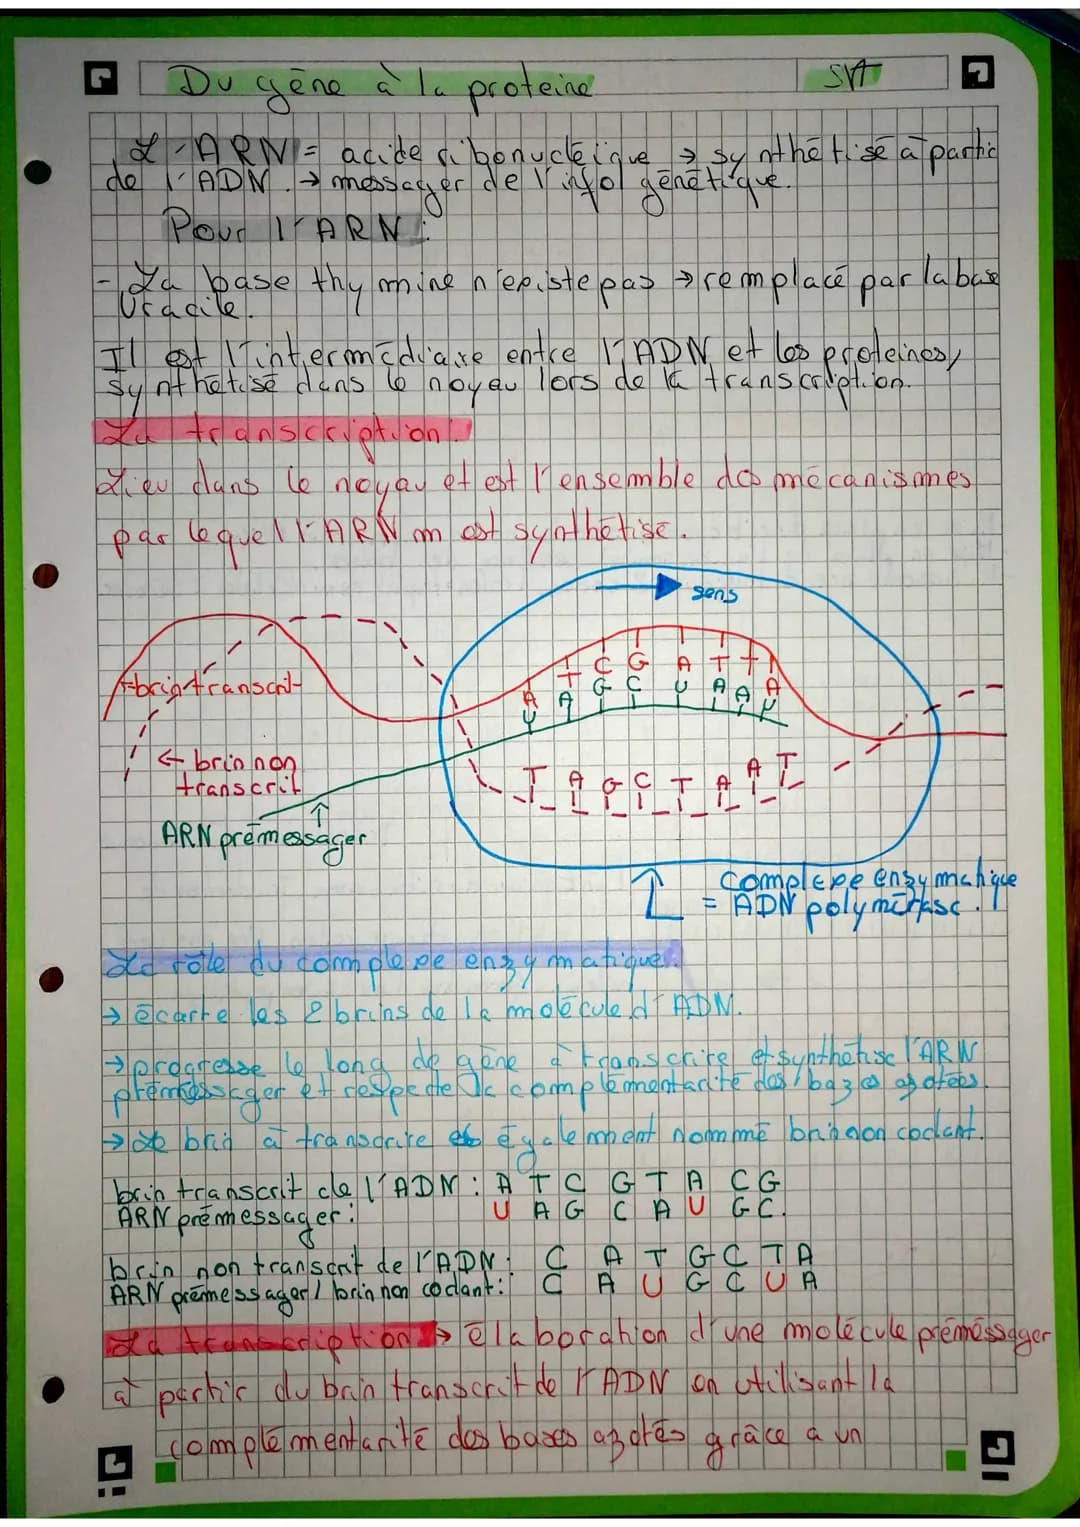 Du gène à la proteine
SVT
L'ARN = acide ribonucléique → synthétisé à partir
de l'ADN. → messager de l'info génétique.
Pour l'ARN :
- La base thymine n'existe pas → remplacé par la base
Uracile.
Il est l'intermédiaire entre l'ADN et les proteines,
synthétisé dans le noyau lors de la transcription.
La transcription :
Lieu dans le noyau et est l'ensemble des mécanismes
par lequel l'ARN m est synthétisé.
sens
A T C G A T T A
U A G C U A A U
←brin transcrit
← brin non
transcrit
T A G C T A A T
ARN prémessager
complexe enzymatique
= ADN polymérase.
Le rôle du complexe enzymatique :
→ écarte les 2 brins de la molécule d'ADN.
→ progresse le long de gène à transcrire et synthétise l'ARN
prémessager et respecte la complémentarité des bazes azotées.
→ Le brin à transcrire est également nommé brin non codant.
brin transcrit de l'ADN : A T C G T A C G
ARN prémessager : U A G C A U G C.
brin non transcrit de l'ADN : C A T G C T A
ARN prémessager / brin non codant : C A U G C U A
La transcription → élaboration d'une molécule prémessager
à partir du brin transcrit de l'ADN en utilisant la
complémentarité des bases azotés grâce a un